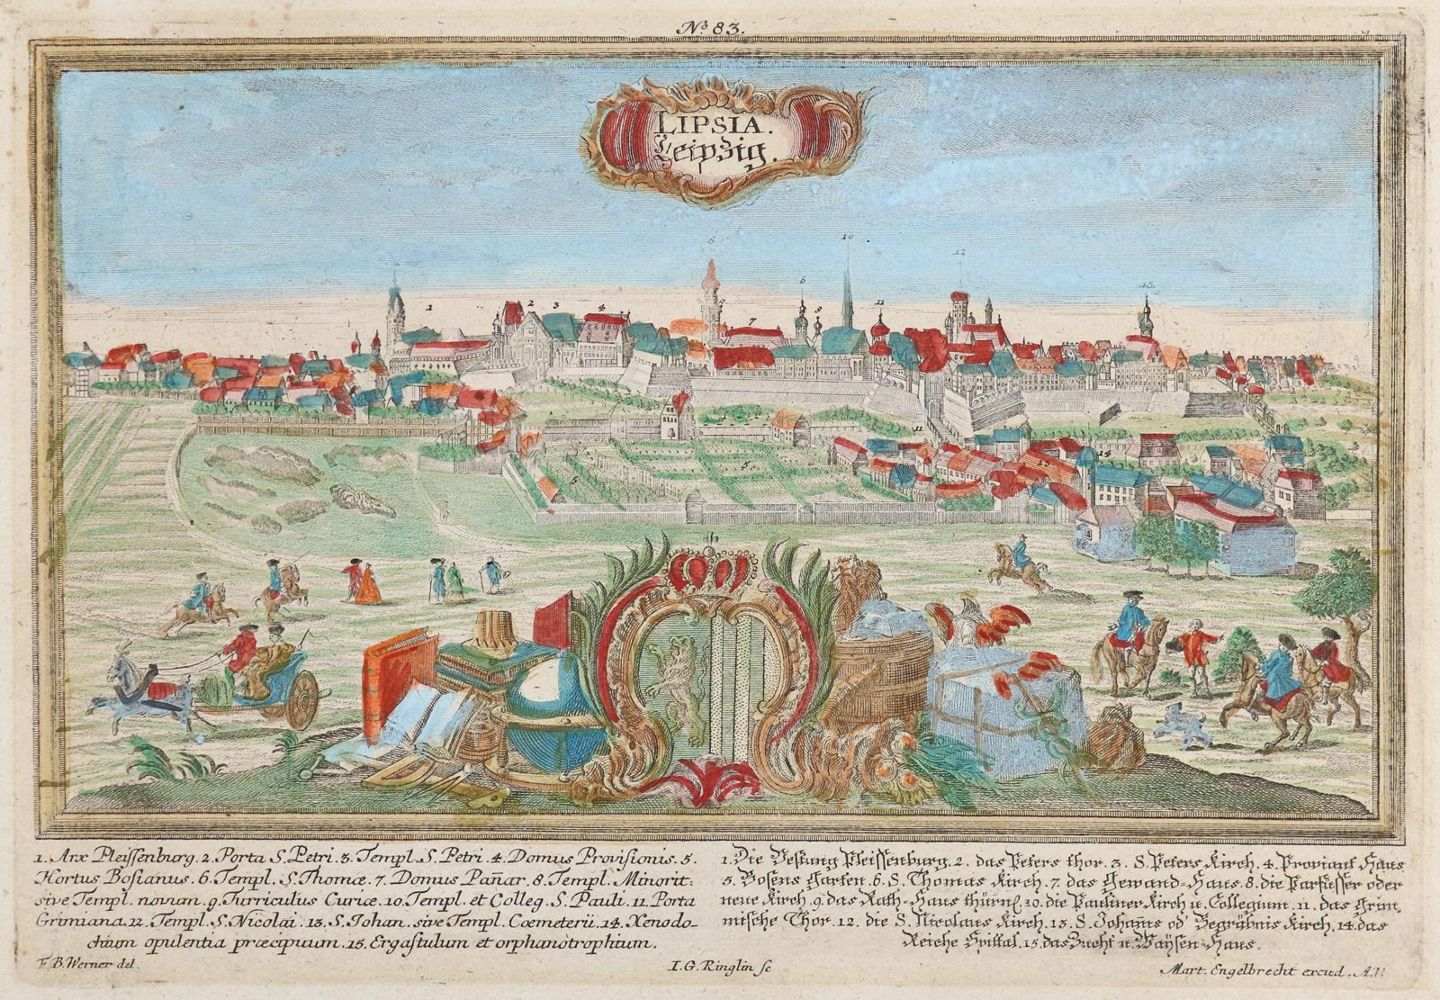 No. 83.
LIPSIA.
Leipzig.
1. Arx Pleissenburg. 2. Porta S. Petri. 3. Templ. S. Petri. 4. Domus Provisionis. 5.
Hortus Bosianus. 6. Templ. S. Thomæ. 7. Domus Pañar. 8. Templ. Minorit:
sive Templ. novum. 9. Turriculus Curiæ. 10. Templ. et Colleg. S. Pauli. 11. Porta
Grimiana. 12. Templ. S. Nicolai. 13. S. Iohan. sive Templ. Cœmeterii. 14. Xenodo-
chium opulentia præcipuum. 15. Ergastulum et orphanotrophium.
1. Die Vestung Pleissenburg. 2. das Peters thor. 3. S. Peters Kirch. 4. Proviant Haus
5. Bosens Garten. 6. S. Thomas Kirch. 7. das Gewand-Haus. 8. die Barfüsser oder
neue Kirch. 9. das Rath-Haus thürnl. 10. die Pauliner Kirch u. Collegium. 11. das Grim-
mische Thor. 12. die S. Nicolaus Kirch. 13. S. Johañs od' Begräbnis Kirch. 14. das
Reiche Spittal. 15. das Zucht u. Waÿsen-Haus.
F. B. Werner del.
I. G. Ringlin sc
Mart. Engelbrecht excud. A.V.